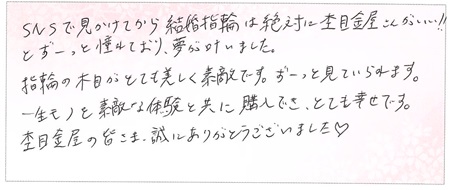 SNSで見かけてから結婚指輪は絶対に杢目金屋さんがいい!!
とずーっと憧れており、夢が叶いました。
指輪の木目がとても美しく素敵です。ずーっと見ていられます。
一生モノを素敵な体験と共に購入でき、とても幸せです。
杢目金屋の皆さま、誠にありがとうございました♡